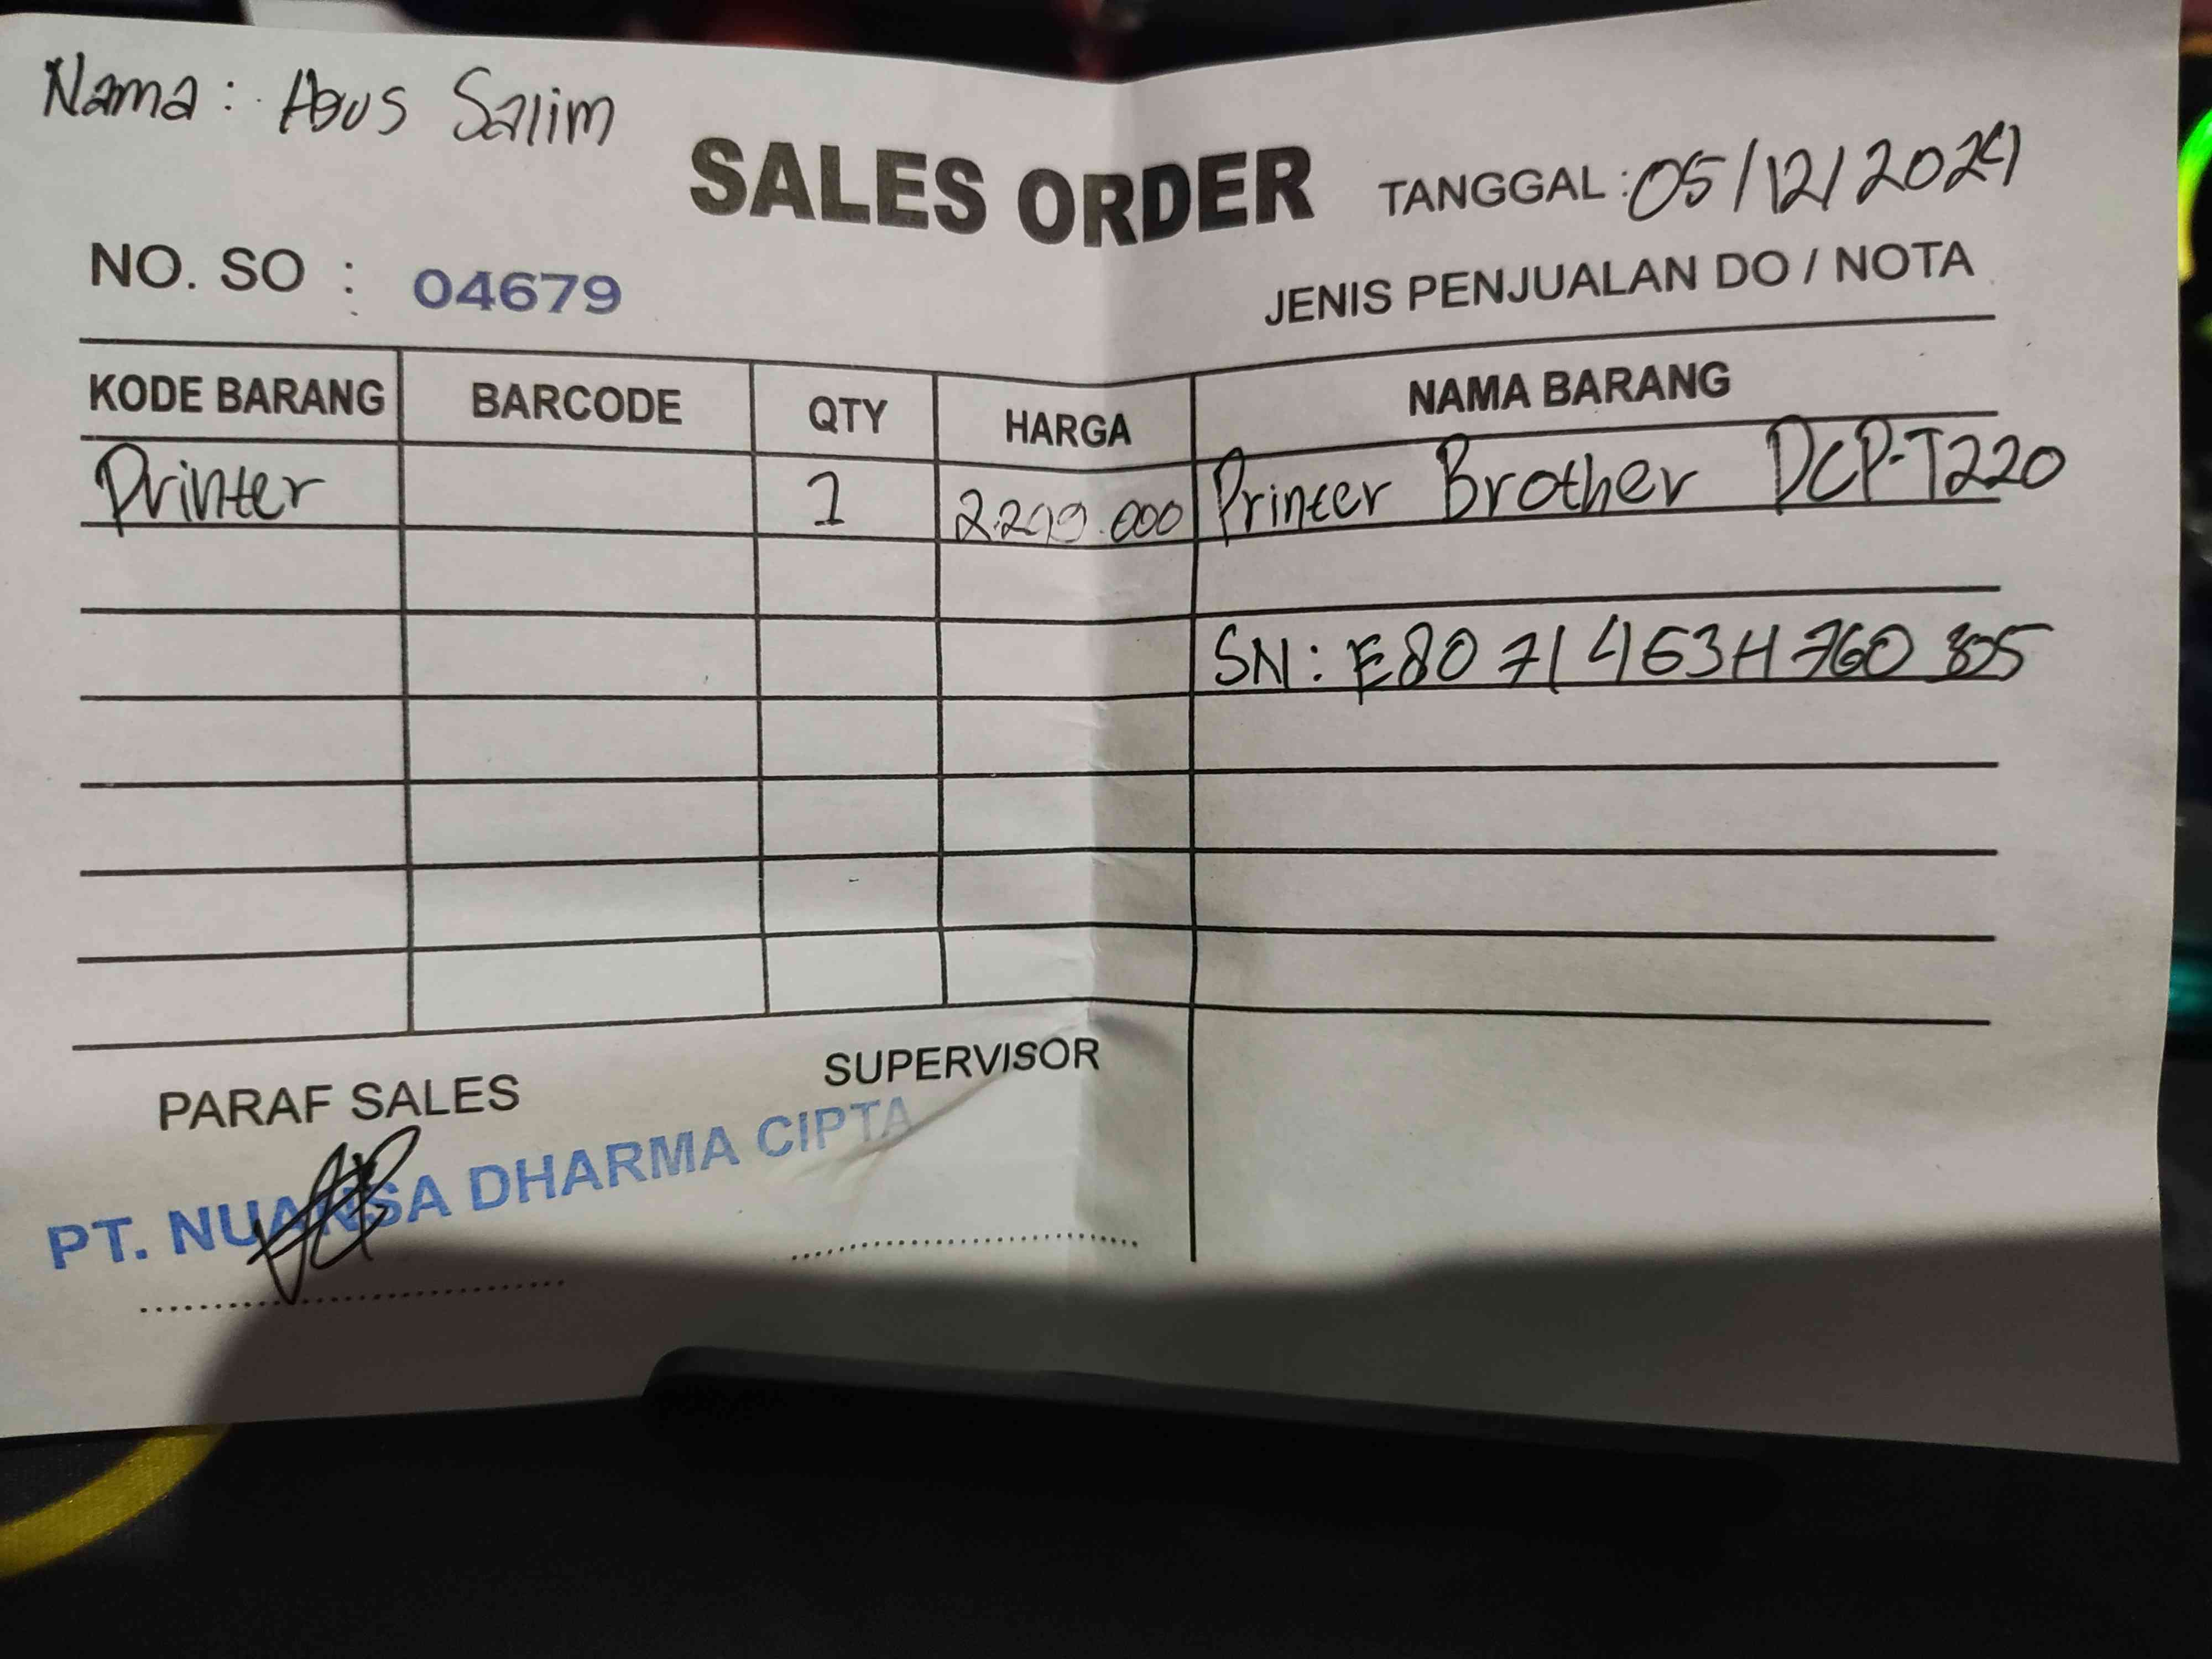 Nama : Agus Salim
SALES ORDER
TANGGAL : 05/12/2024
NO. SO : 04679
JENIS PENJUALAN DO / NOTA
KODE BARANG BARCODE QTY HARGA NAMA BARANG
Printer 1 2.299.000 Printer Brother DCP-T220
SN: E80714634760805
PARAF SALES SUPERVISOR
PT. NUANSA DHARMA CIPTA